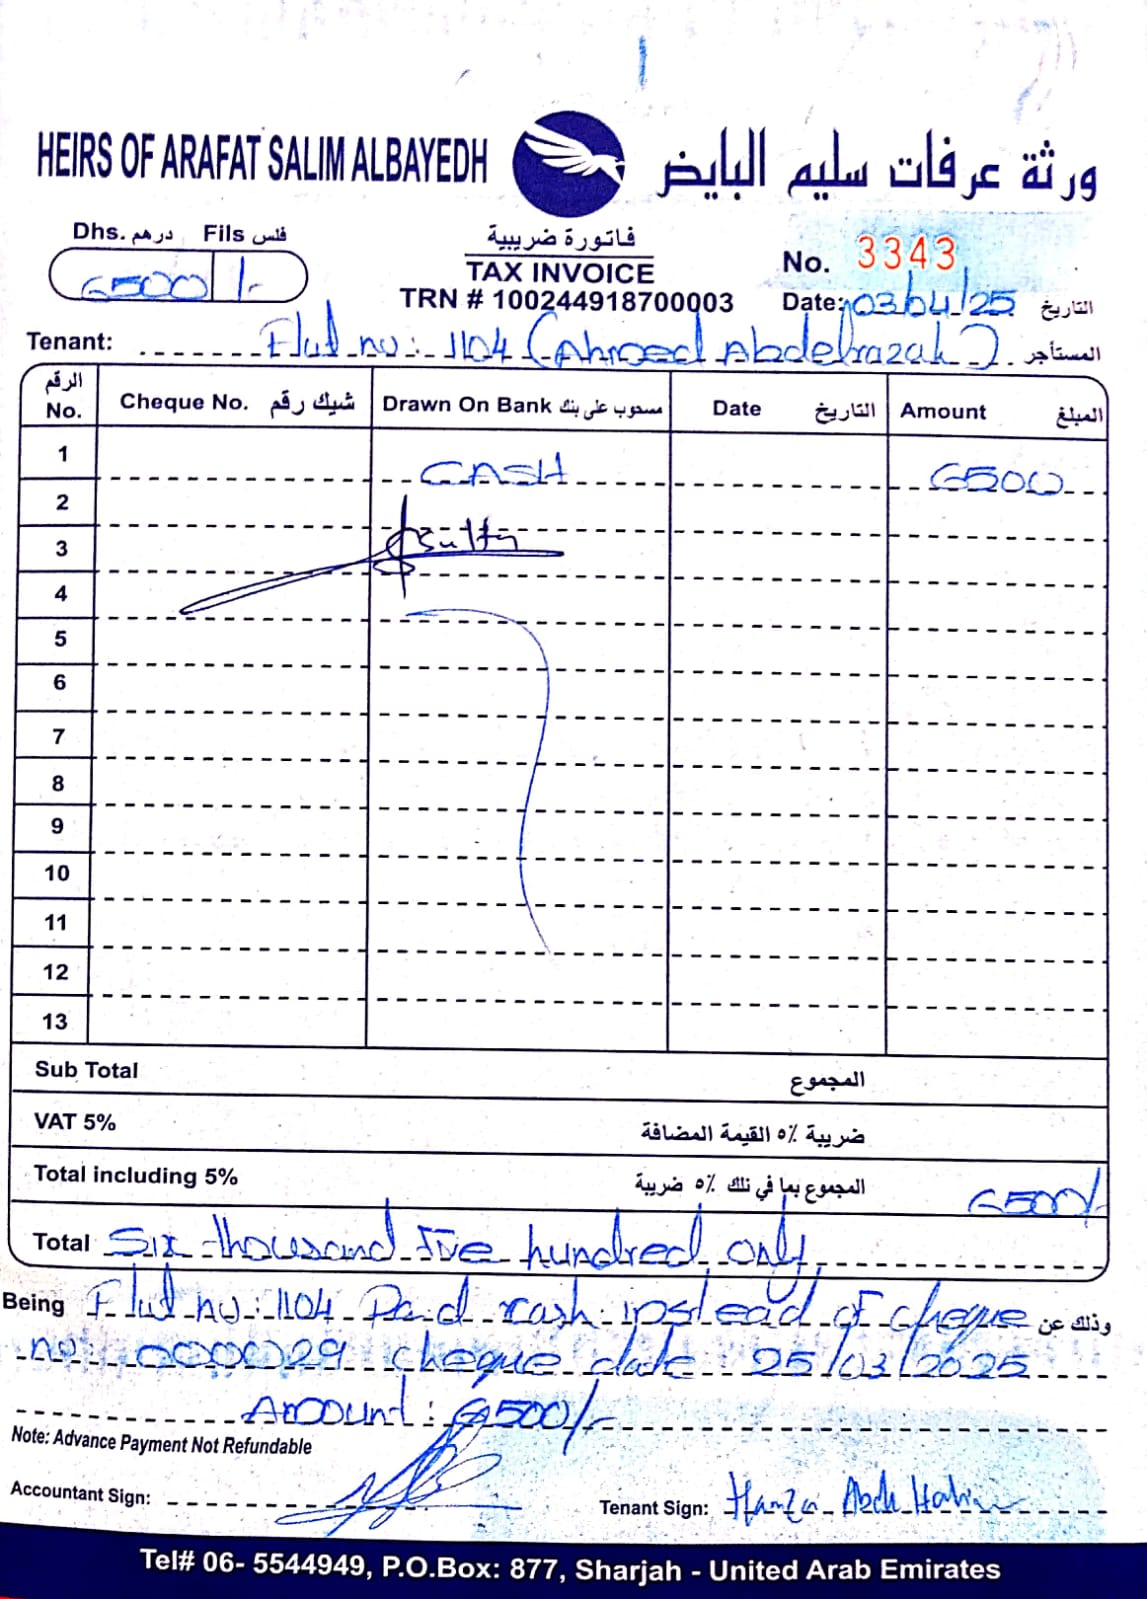 HEIRS OF ARAFAT SALIM ALBAYEDH ورثة عرفات سليم البايض
Dhs. درهم Fils فلس
6500 /-
فاتورة ضريبية
TAX INVOICE
TRN # 100244918700003
No. 3343
Date: 03/04/25 التاريخ
Tenant: Flat no: 1104 (Ahmed Abdelrazak) المستأجر
الرقم No. Cheque No. شيك رقم Drawn On Bank مسحوب على بنك Date التاريخ Amount المبلغ
1 CASH 6500
2
3
4
5
6
7
8
9
10
11
12
13
Sub Total المجموع
VAT 5% ضريبة ٥% القيمة المضافة
Total including 5% المجموع بما في ذلك ٥% ضريبة 6500/-
Total Six thousand five hundred only
Being Flat no: 1104 Paid cash instead of cheque وذلك عن
no: 000029 cheque date: 25/03/2025
Amount: 6500/-
Note: Advance Payment Not Refundable
Accountant Sign:
Tenant Sign: Hamza
Tel# 06- 5544949, P.O.Box: 877, Sharjah - United Arab Emirates